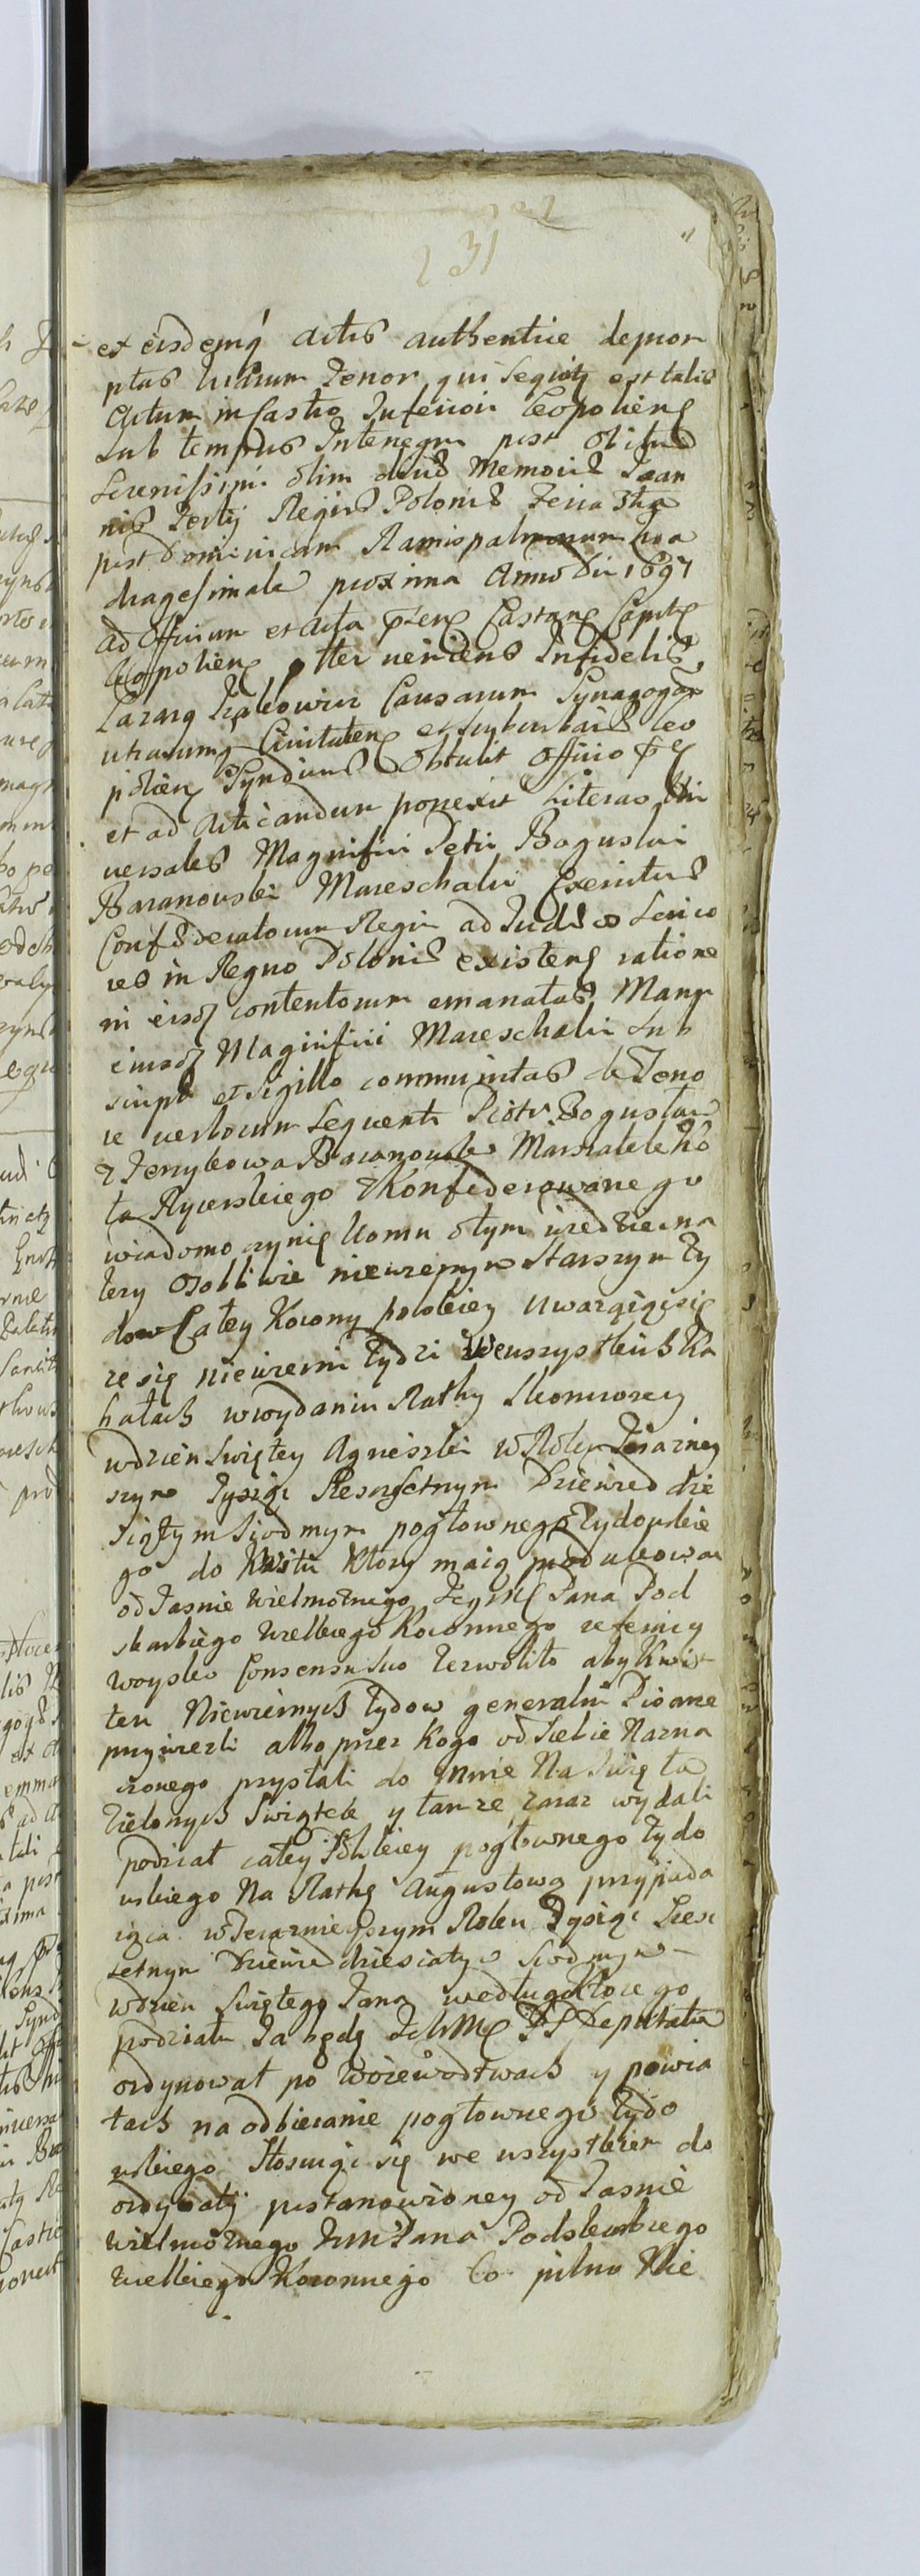 231
et eisdemq́ actis authentice depor
ptas quarum Tenor qui sequitr est talis
Actum in Castro Inferiori Leopolienſ
Sub tempus Interregni post obitum
Serenissimi olim divæ Memoriæ Ioan
nis Tertij Regis Poloniæ Feria 3tia
post Dominicam Ramispalmarum Qua
dragesimale proxima Anno Dni 1697
ad Officium et Acta pñenſ Castrenſ Capitlia
Leopolienſ pltter veniens Infidelis
Lazarg Ickowicz Causarum Synagogar
utriusqung Civitatenſ et suburbanæ Leo
polienſ Syndicus Obtulit Officio pñti
et ad Acticandum porrexit Literas Uni
versales Magnifici Petri Boguslai
Baranowski Mareschalci Exercitus
Confœderatorum Regni ad Judæos Senio
res in Regno Poloniæ existenſ ratione
in eisdſ contentorum emanatas Manu
eiusdſ Magnifici Mareschalci Sub
script et sigillo communitas de Teno
re verborum sequenti Piotr Bogusław
z Jerzykowa Baranowski Marszałek Ko
ła Rycerskiego Skonfederowanego
wiadomo czynię komu o tym wiedziec na
lezy osobliwie niewiernym Starszym Ży
dow Całey Korony polskiey Uwaząjąc się
ze się niewierni Żydzi we wszystkich Ka
hałach w wydaniu Rathy skonczoney
w dzien Swiętey Agnieszki w Roku Terazney
szym Tysiąc Szescsetnym Dziewiedzie
siątym Siodmym pogłownego Żydowskie
go do Kwitu Ktory maią produkowac
od Jasnie Wielmoznego Jegomſ Pana Pod
skarbiego Wielkiego Koronnego
Woysko Consensu suo zezwoliło aby Kwit
ten Niewiernych Żydow generalni Pisarze
przywiezli albo przez kogo od siebie Nazna
czonego przysłali do mnie Na Swięta
Zielonych Swiątek y tamze zaraz wydali
podział całey Polskiey pogłownego Żydo
wskiego Na Rathę Augustową przypada
iąca w Teraznieyszym Roku Tysiąc Szesc
setnym Dziewiedziesiątym Siodmym
w dzien Swiętego Jana według ktorego
podziału Ja będę IchMſ PP Deputatow
ordynował po Woiewodztwach y powia
tach na odbieranie pogłownego Żydo
wskiego Stosuiąc się we wszystkim do
ordynatij postanowioney od Jasnie
Wielmoznego JmPana Podskarbiego
Wielkiego Koronnego Co pilno Nie